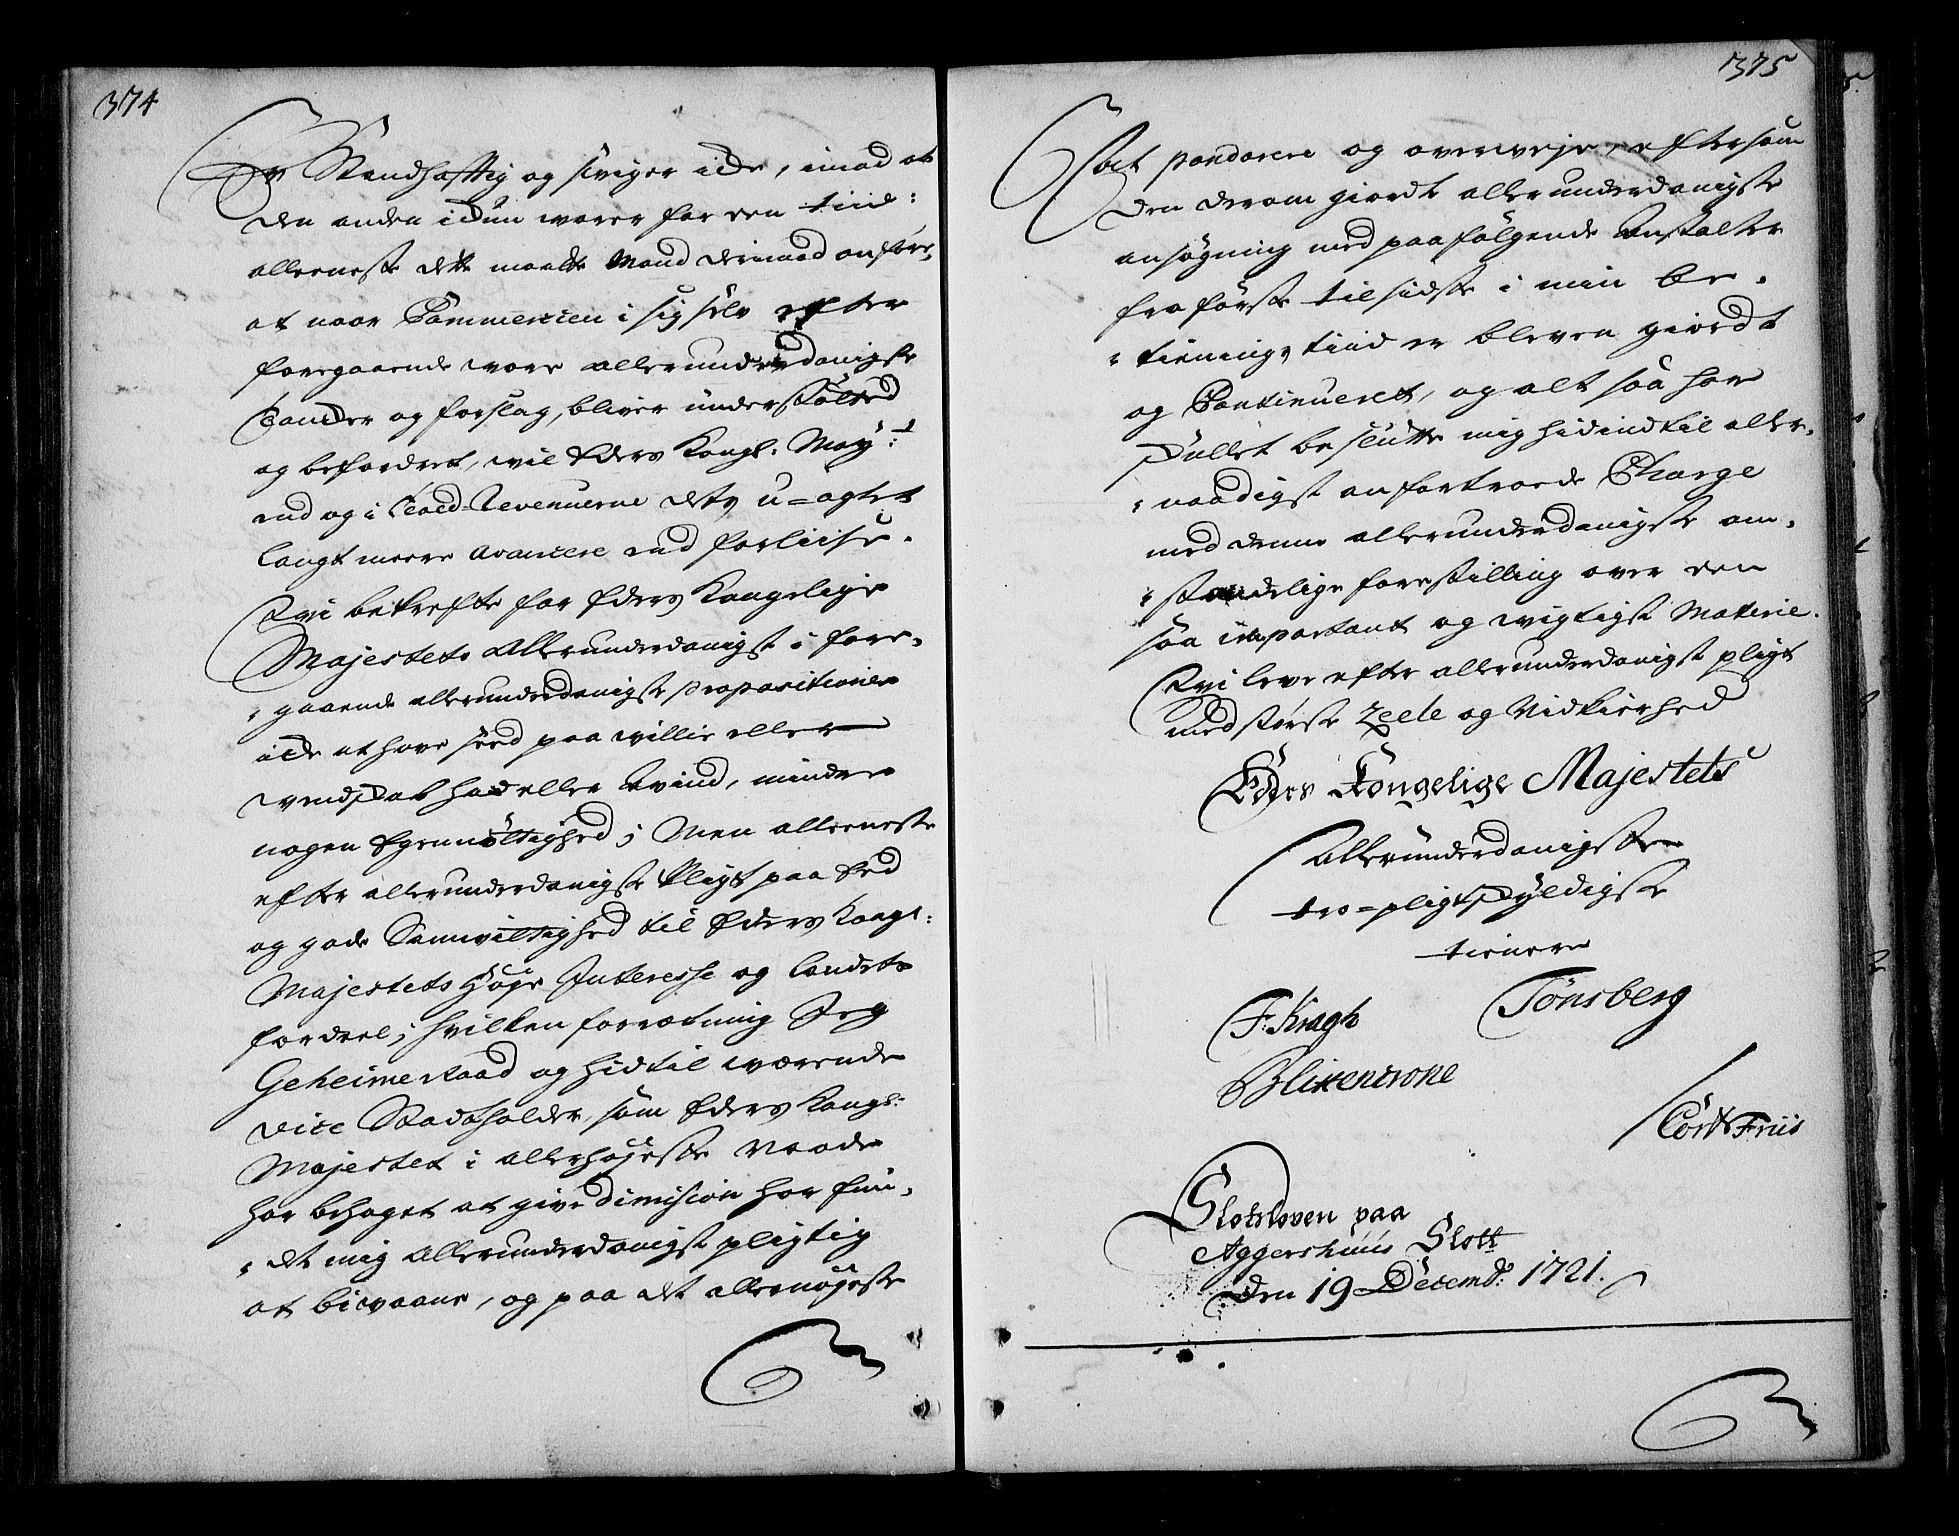 374
er Standhaftig og siviger icke, imod at
den anden icke kun warer for een tiid:
alleeneste dette maatte Mand derimod anføre,
at naar Commercien i sig selv efter
foregaaende vore allerunderdanigste
tancker og forslag, bliver understøtted
og befordret, vil Eders Kongl: May:t
end og i Told-Revenuerne dets u-agtet
langt meere avancere end forliise.
Vi bekrefte for Eders Kongelige
Majestets Allerunderdanigst i fore-
gaaende allerunderdanigste propositioner
icke at have seed paa willie eller
wendskab had eller avind, mindre
nogen Egennøttighed; Men alleeneste
efter allerunderdanigste Pligt paa Eed
og gode Samvittighed til Eders Kongl:
Majestets Høye Interesse og landets
fordeel; hvilken forretning Jeg
Geheime Raad og hidtil værende
Vice Stadtholder, som Eders Kongl:
Majestet i allerhøyeste Naade
har behaget at give dimision har fun-
det mig Allerunderdanigst pligtig
at bivaane, og paa det allernøyeste
375
at ponderere og overveje, eftersom
den derom giordt allerunderdanigste
ansøgning med paafølgende Anstalter
fra første til sidste i min be-
tienings tiid er bleven giordt
og Continueret, og alt saa har
skullet beslutte mig hidindtil aller-
naadigst anfortroede Charge
med denne allerunderdanigste om-
standelige forestilling over een
saa important og wigtigst Materie.
Vi leve efter allerunderdanigst pligt
med største Zeele og Nidkierhed
Eders Kongelige Majestets
Allerunderdanigste
tro-pligtskyldigste
tienere
F: Kragh Tønsberg
Blixencrone
Cort Friis
Slotsloven paa
Aggershuus Slott
den 19 Decembr: 1721.